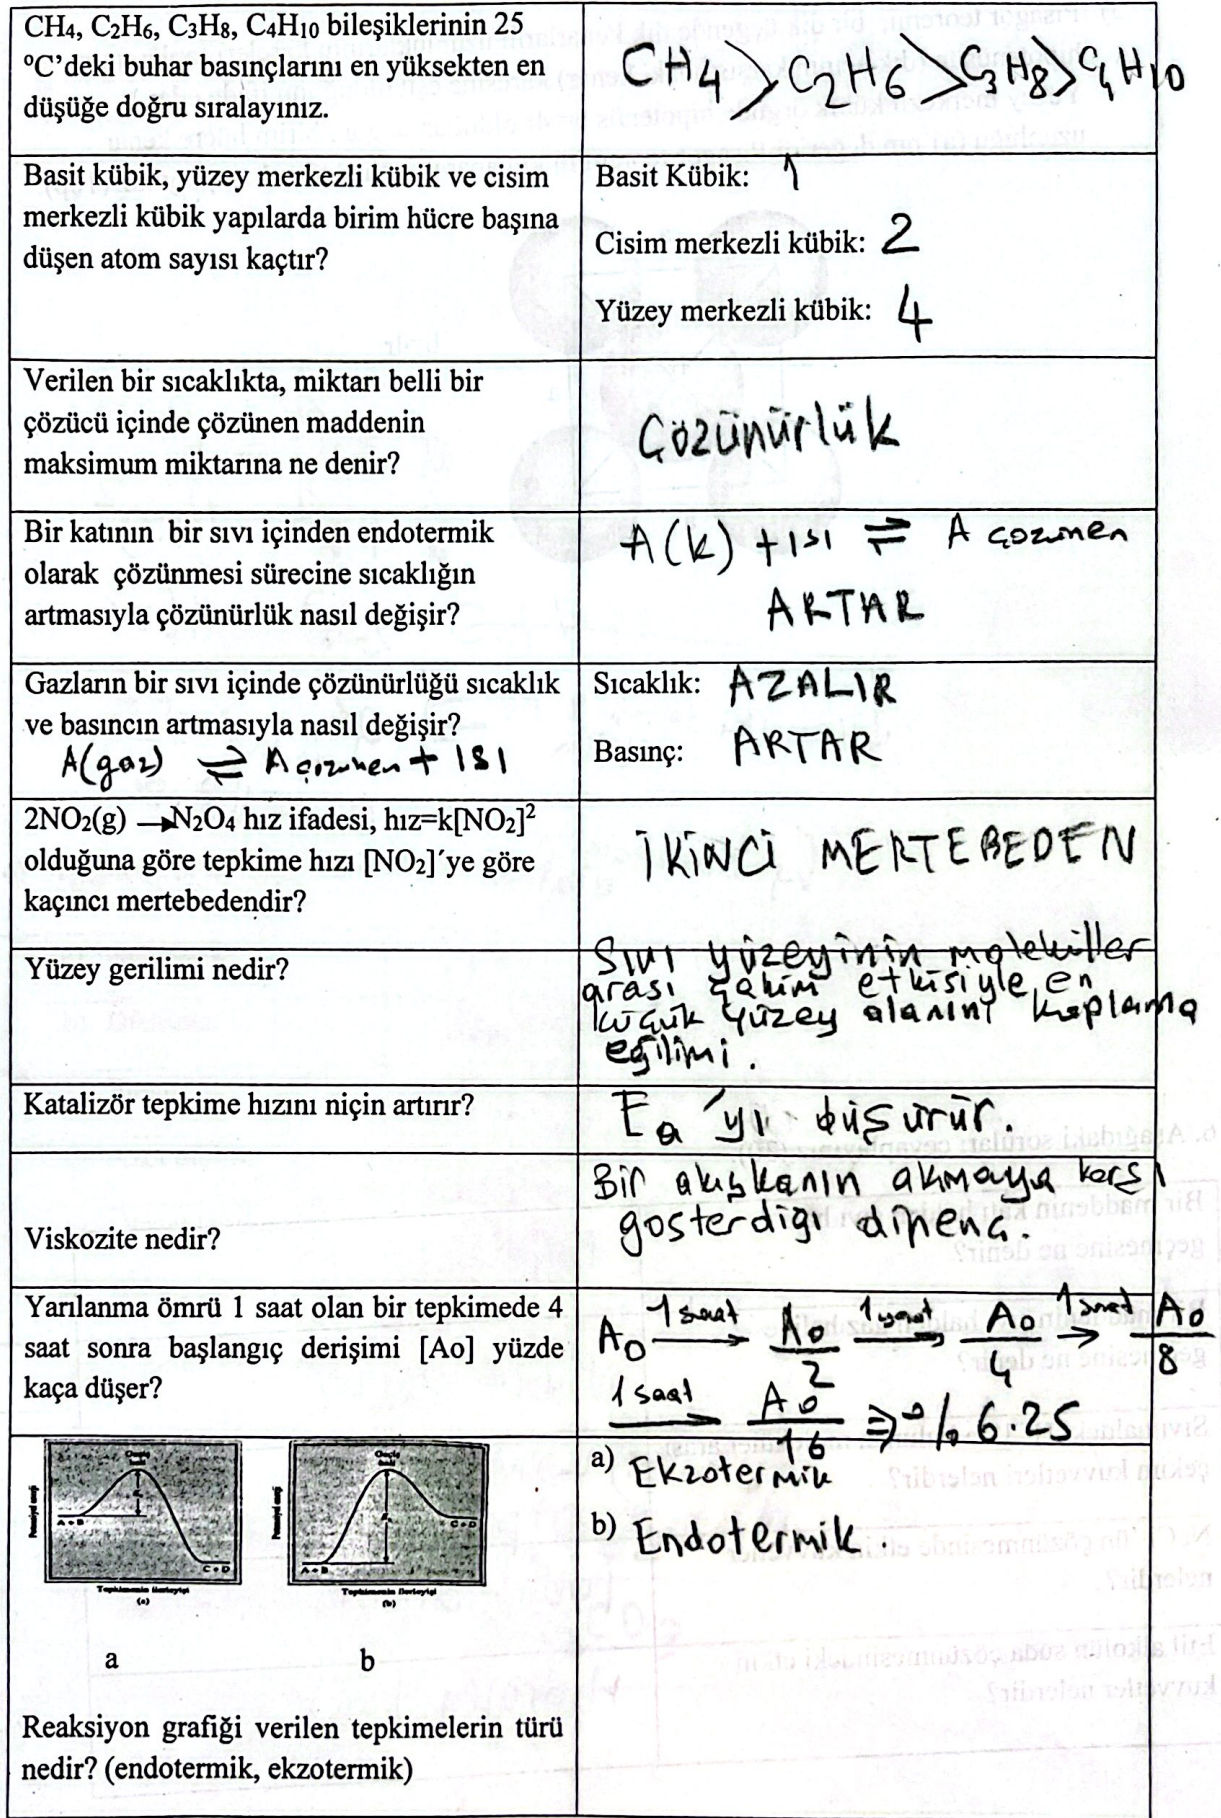 CH4, C2H6, C3H8, C4H10 bileşiklerinin 25
ºC’deki buhar basınçlarını en yüksekten en
düşüğe doğru sıralayınız.
CH4>C2H6>C3H8>C4H10
Basit kübik, yüzey merkezli kübik ve cisim
merkezli kübik yapılarda birim hücre başına
düşen atom sayısı kaçtır?
Basit Kübik: 1
Cisim merkezli kübik: 2
Yüzey merkezli kübik: 4
Verilen bir sıcaklıkta, miktarı belli bir
çözücü içinde çözünen maddenin
maksimum miktarına ne denir?
Çözünürlük
Bir katının bir sıvı içinden endotermik
olarak çözünmesi sürecine sıcaklığın
artmasıyla çözünürlük nasıl değişir?
A(k) + ısı ⇌ A çözünen
ARTAR
Gazların bir sıvı içinde çözünürlüğü sıcaklık
ve basıncın artmasıyla nasıl değişir?
A(gaz) ⇌ A çözünen + ISI
Sıcaklık: AZALIR
Basınç: ARTAR
2NO2(g) →N2O4 hız ifadesi, hız=k[NO2]²
olduğuna göre tepkime hızı [NO2]´ye göre
kaçıncı mertebedendir?
İKİNCİ MERTEBEDEN
Yüzey gerilimi nedir?
Sıvı yüzeyinin moleküller
arası çekim etkisiyle en
küçük yüzey alanını kaplama
eğilimi.
Katalizör tepkime hızını niçin artırır?
Ea ´yı düşürür.
Viskozite nedir?
Bir akışkanın akmaya karşı
gösterdiği direnç.
Yarılanma ömrü 1 saat olan bir tepkimede 4
saat sonra başlangıç derişimi [Ao] yüzde
kaça düşer?
A0 1 saat → A0/2 1 saat → A0/4 1 saat → A0/8
1 saat → A0/16 ⇒ % 6.25
Potansiyel enerji
A + B
C + D
Tepkimenin ilerleyişi
(a)
Potansiyel enerji
A + B
C + D
Tepkimenin ilerleyişi
(b)
a b
Reaksiyon grafiği verilen tepkimelerin türü
nedir? (endotermik, ekzotermik)
a) Ekzotermik
b) Endotermik.